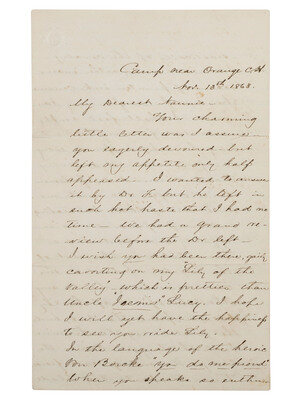 Camp near Orange C.H.
Nov. 13th 1863.
My Dearest Nannie—
Your charming
little letter was I assure
you eagerly devoured—but
left my appetite only half
appeased. I wanted to answer
it by Dr. F. but he left in
such hot haste that I had no
time—We had a grand re-
view before the Dr left—
I wish you had been there, gaily
cavorting on my "Lily of the
Valley" which is prettier than
Uncle Lucy. I hope
I will yet have the happiness
to see you ride Lily.
In the language of the heroic
Von Borcke "you do me proud"
when you speaks so